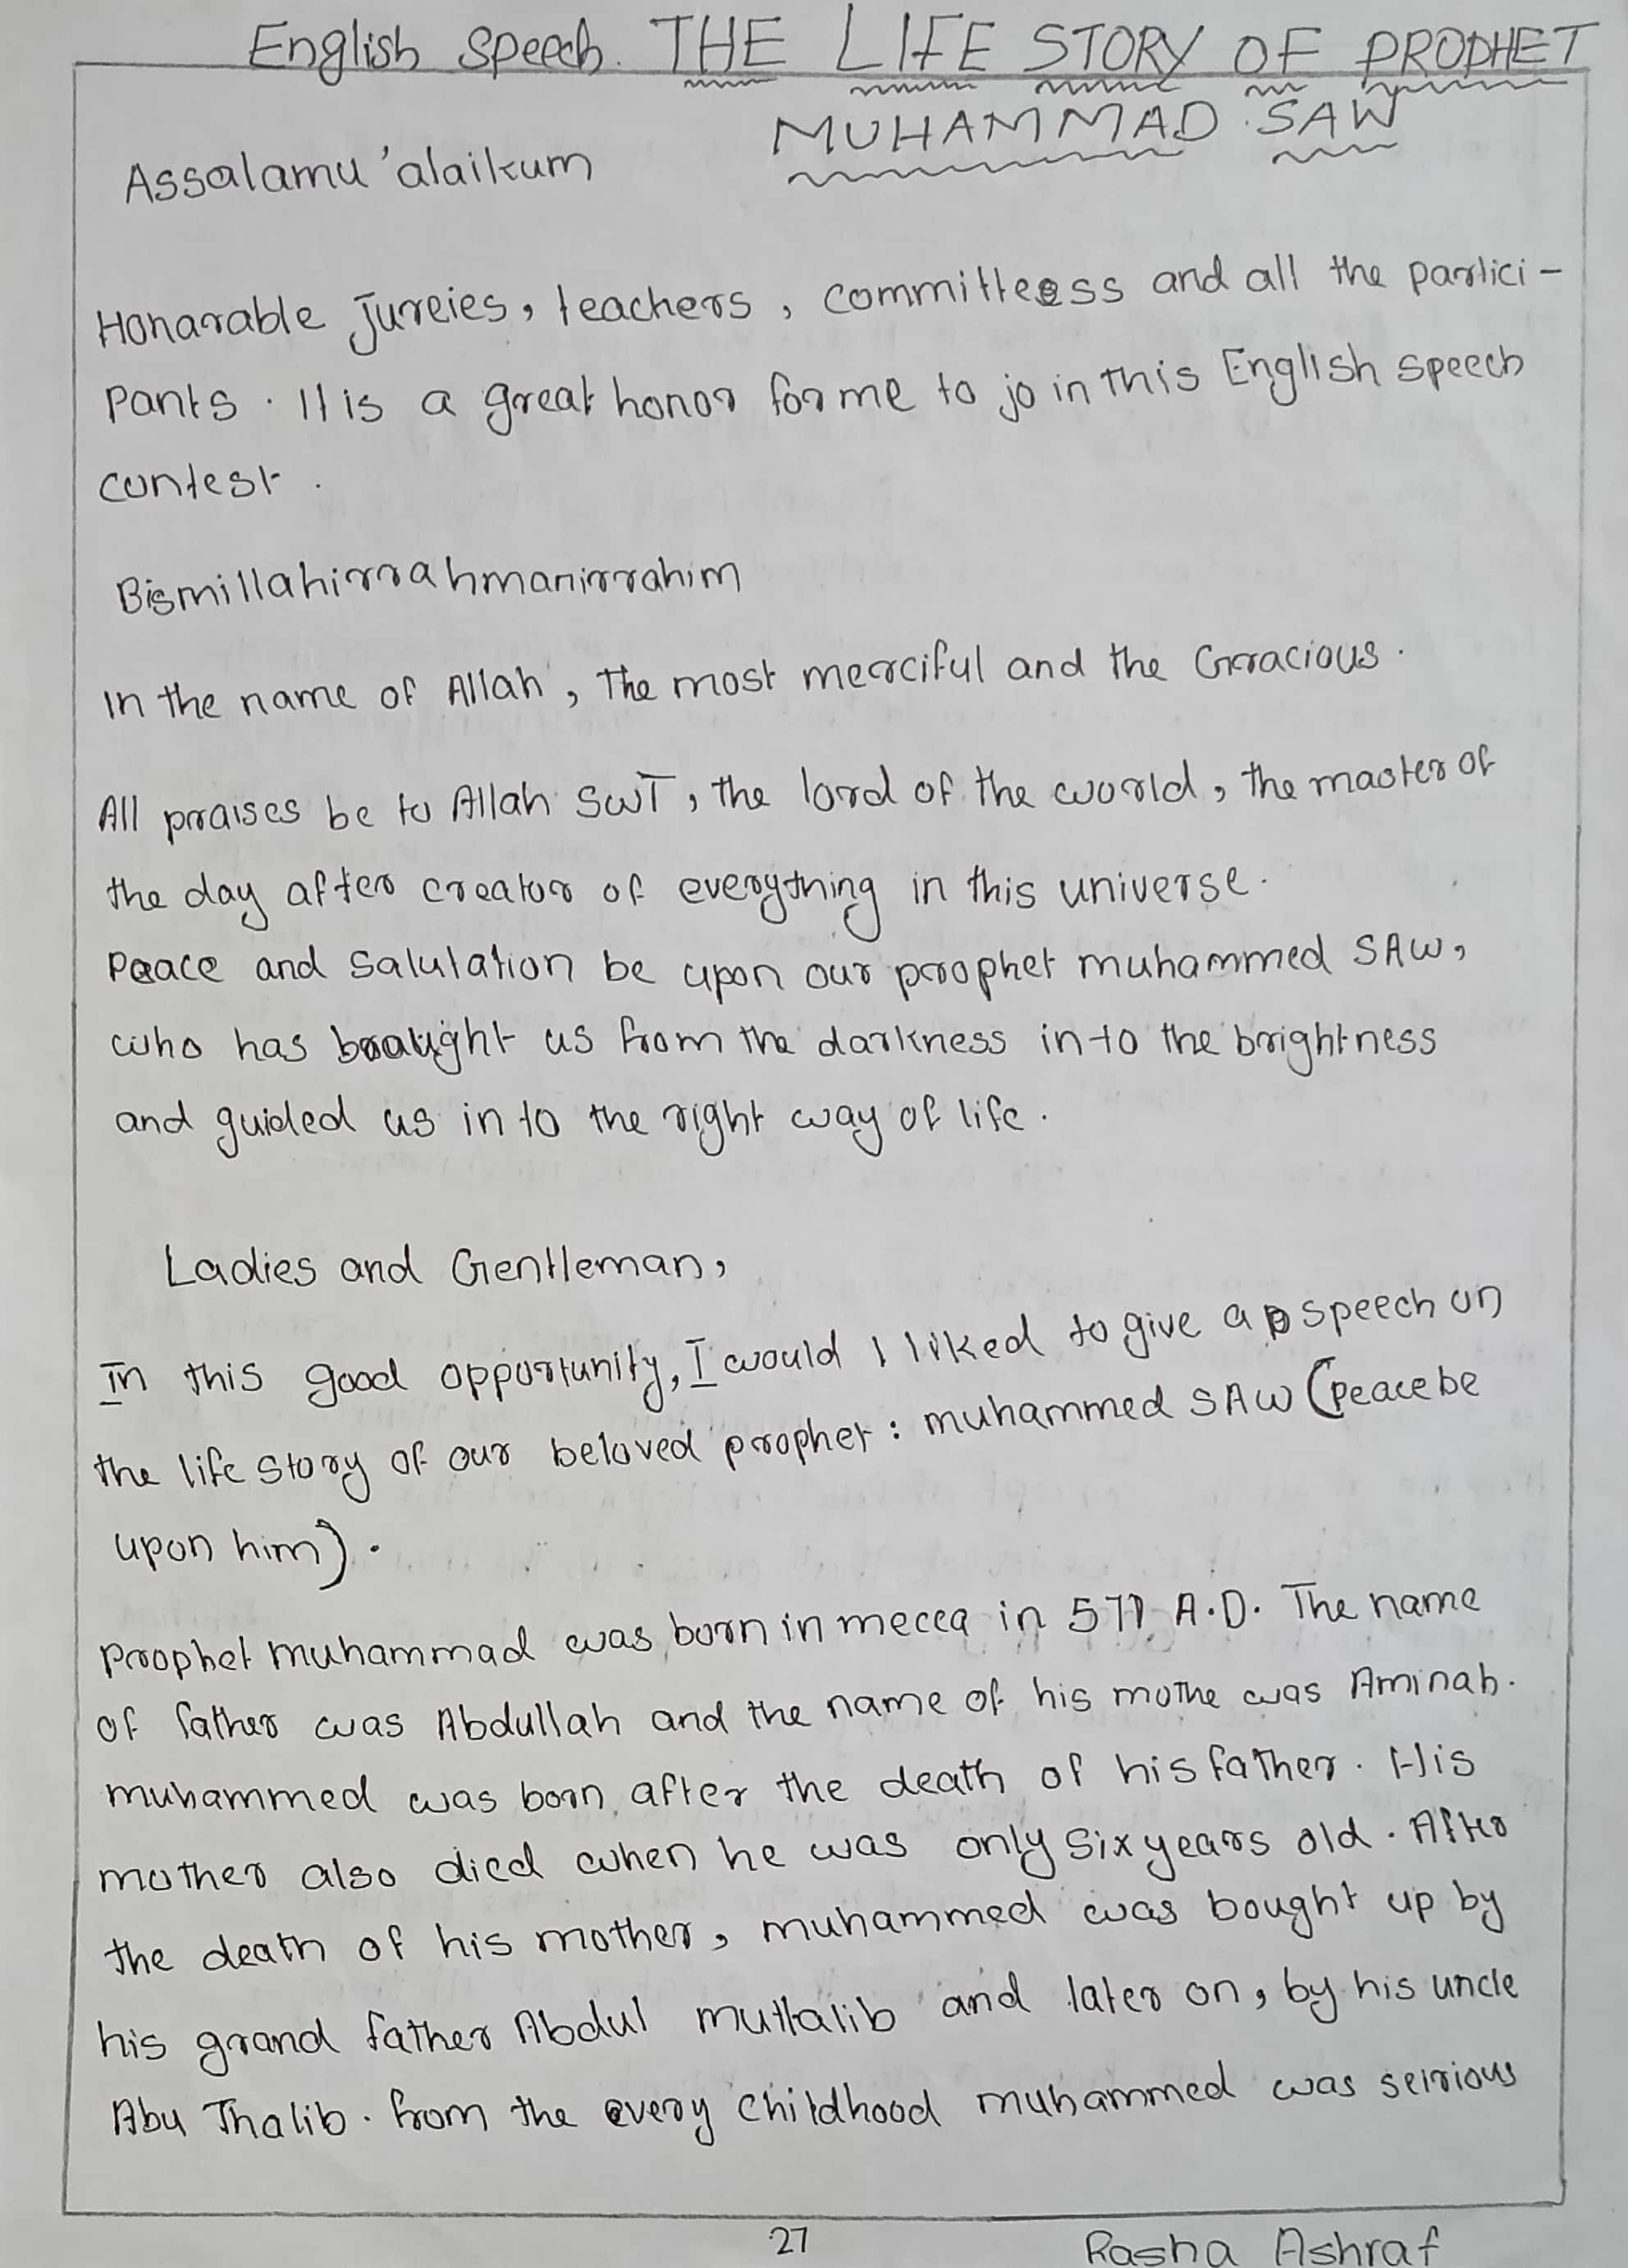 English speech. THE LIFE STORY OF PROPHET
MUHAMMAD SAW
Assalamu 'alaikum
Honarable Jureies, teachers, committeess and all the partici-
pants. It is a great honor for me to join this English speech
contest.
Bismillahirrahmanirrahim
In the name of Allah, The most merciful and the Gracious.
All praises be to Allah SWT, the lord of the world, the master of
the day after creator of everything in this universe.
Peace and salutation be upon our prophet muhammed SAW,
who has brought us from the darkness in to the brightness
and guided us in to the right way of life.
Ladies and Gentleman,
In this good opportunity, I would liked to give a speech on
the life story of our beloved prophet : muhammed SAW (peace be
upon him).
prophet muhammad was born in mecca in 571 A.D. The name
of father was Abdullah and the name of his mothe was Aminah.
muhammed was born after the death of his father. His
mother also died when he was only six years old. After
the death of his mother, muhammed was bought up by
his grand father Abdul muttalib and later on, by his uncle
Abu Thalib. from the every childhood muhammed was seirious
27
Rasha Ashraf